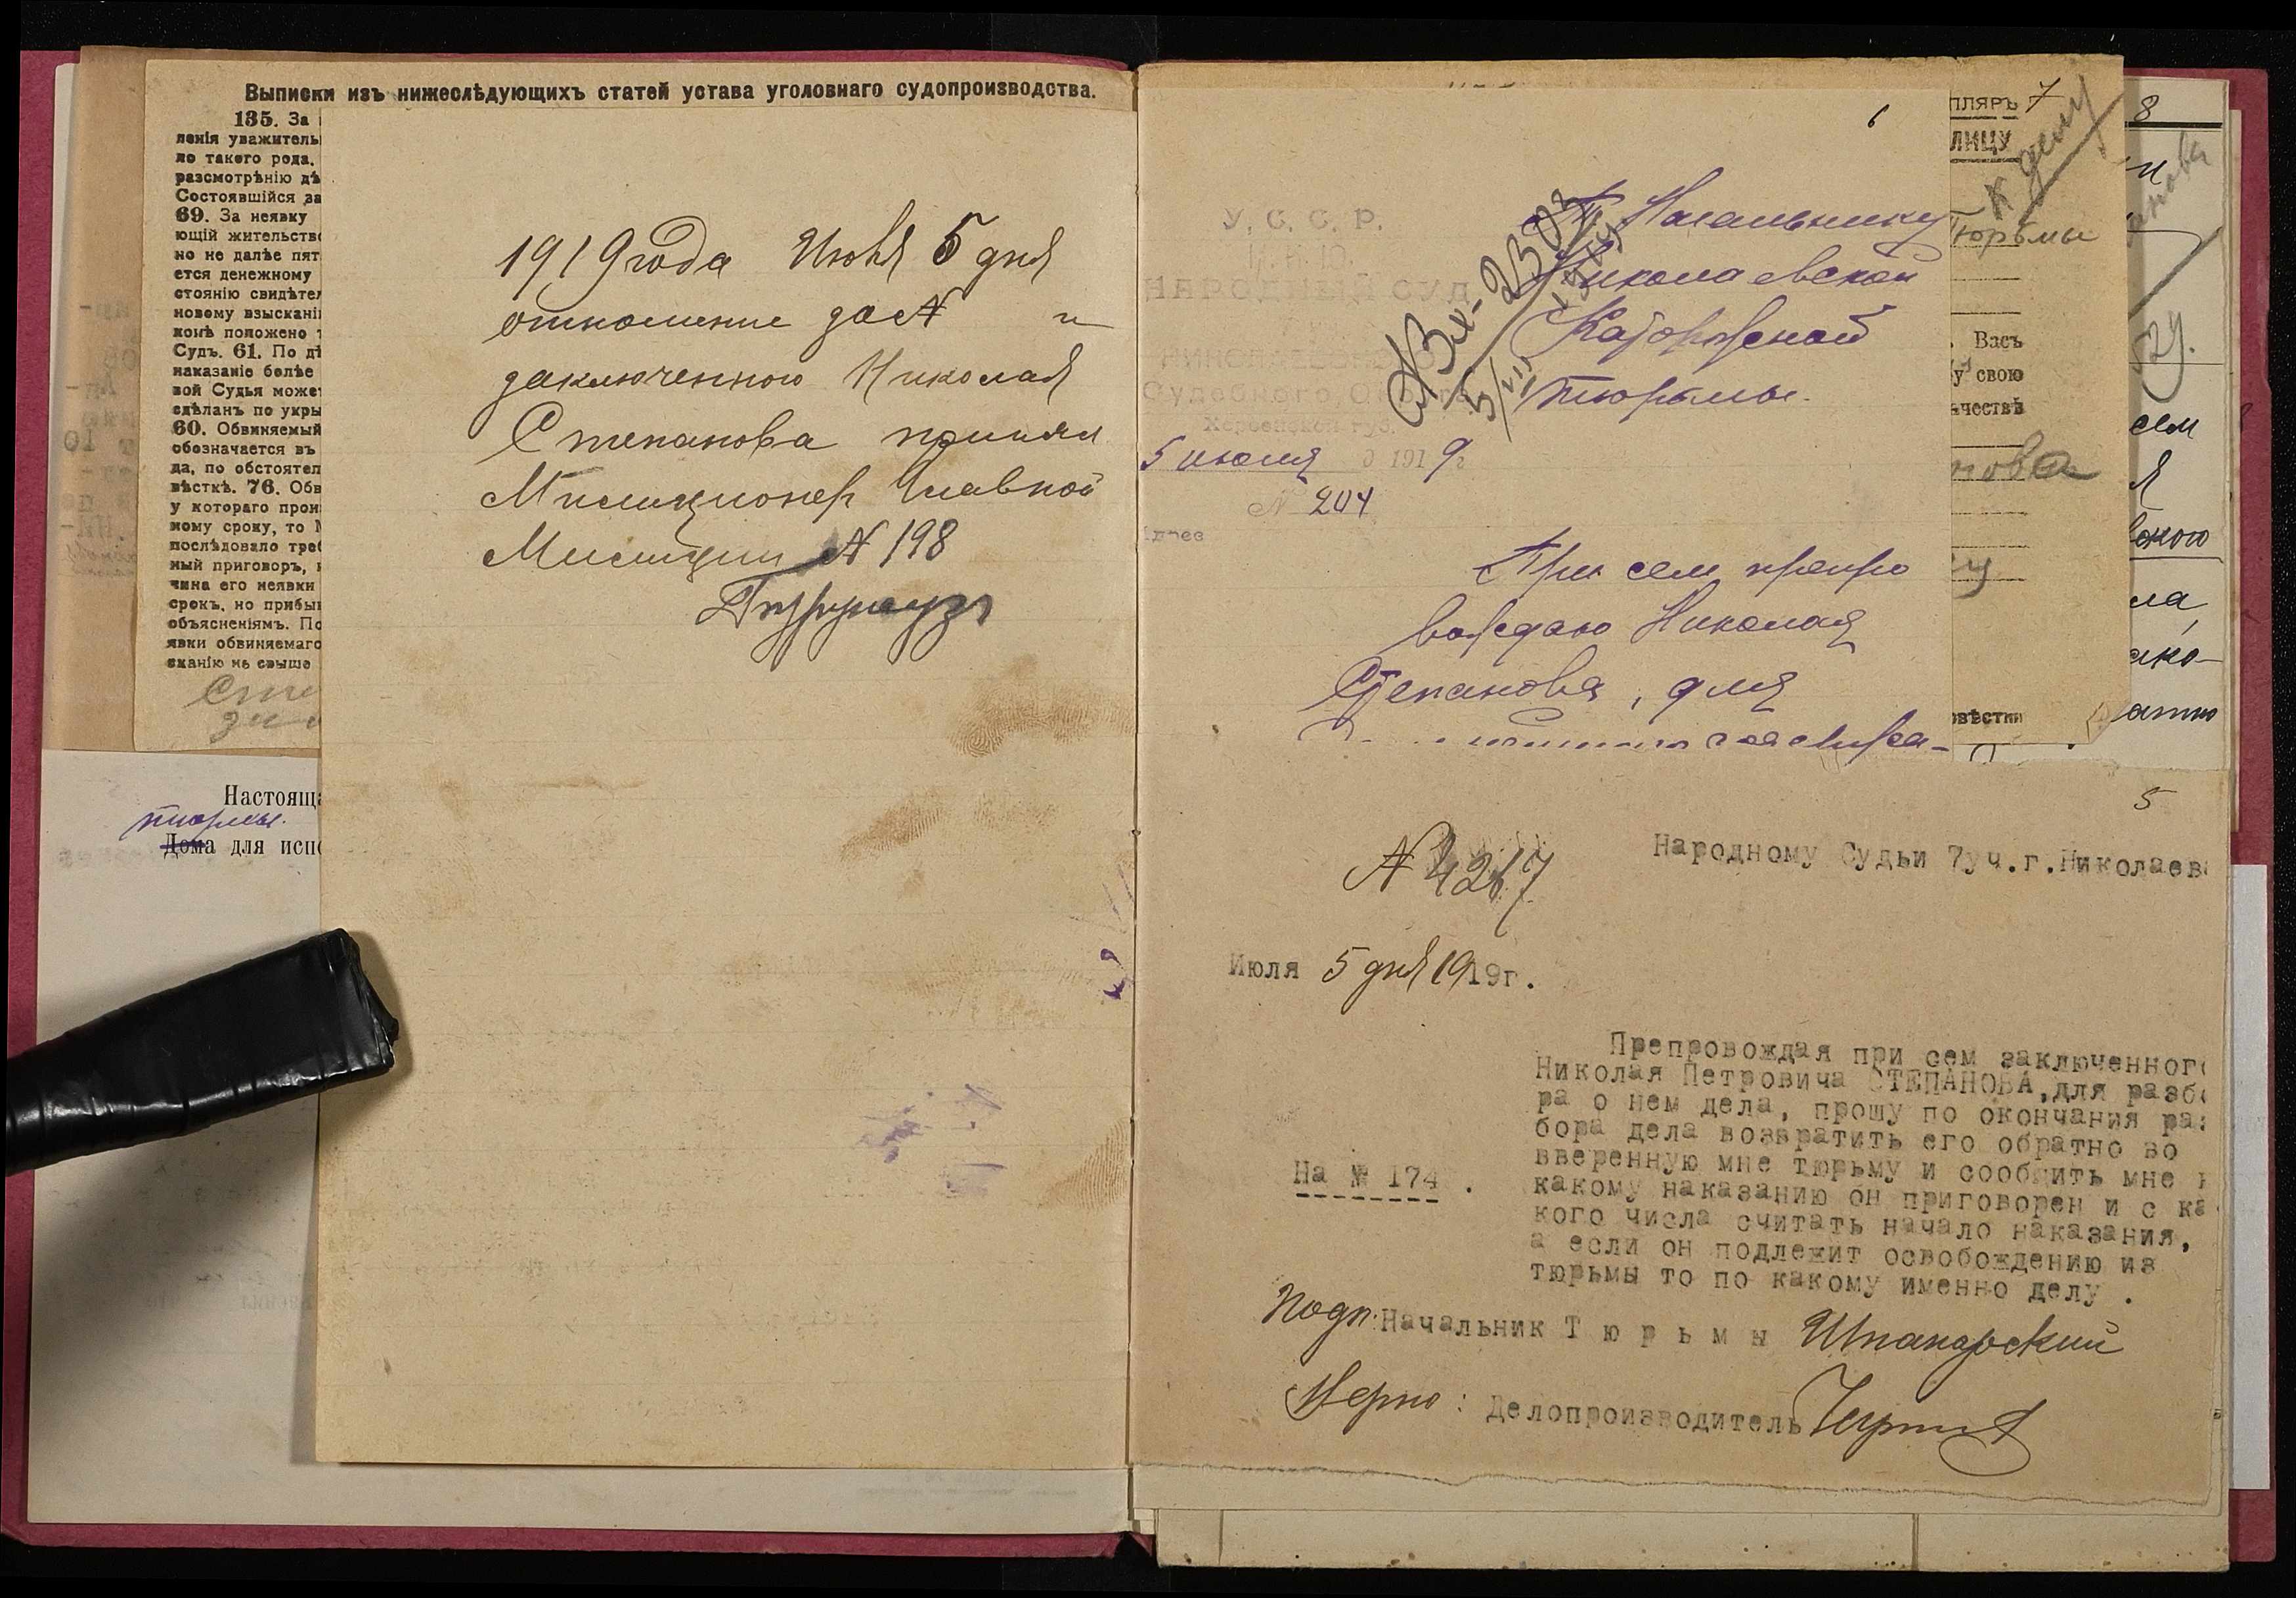 Выписки изъ нижеслѣдующихъ статей устава уголовнаго судопроизводства.
135. За
ленія уважитель
ло такого рода.
разсмотрѣнію дѣ
Состоявшійся за
69. За неявку
ющій жительство
но не далѣе пят
ется денежному
стоянію свидѣтел
новому взысканію
конѣ положено т
Судъ. 61. По дѣ
наказаніе болѣе
вой Судья может
сдѣланъ по укры
60. Обвиняемый
обозначается въ
да, по обстоятел
вѣсткѣ. 76. Обв
у котораго произ
ному сроку, то М
послѣдовало треб
ный приговоръ, н
чина его неявки
срокъ, но прибы
объясненіямъ. По
явки обвиняемаго
сканію не свыше
Настояща
тюрьмы.
Дома для испо
1919 года Июля 5 дня
отношение за №
заключенного Николая
Степанова принял
Милиционер Главной
Милиции № 198
6
У. С. С. Р.
Н. К. Ю.
НАРОДНЫЙ СУД
Судебного Округа
Херсонской губ.
5 июля 1919 г.
№ 204
Вх-2303
5/VII
Начальнику
Николаевской
Каторжной
тюрьмы.
При сем препро
вождаю Николая
Степанова, для
ПЛЯРЪ 7
ЛИЦУ
К делу
Тюрьмы
Васъ
у свою
ачествѣ
нова
овѣстки
8
сем
я
ского
ла,
ако-
5
№ 4267
Народному Судьи 7уч.г.Николаев
Июля 5 дня 1919г.
Препровождая при сем заключенного
Николая Петровича СТЕПАНОВА,для разбо
ра о нем дела, прошу по окончания раз
бора дела возвратить его обратно во
вверенную мне тюрьму и сообщить мне к
На № 174 .
какому наказанию он приговорен и с ка
кого числа считать начало наказания,
а если он подлежит освобождению из
тюрьмы то по какому именно делу .
Подп: Начальник Тюрьмы Шпанарский
Верно: Делопроизводитель